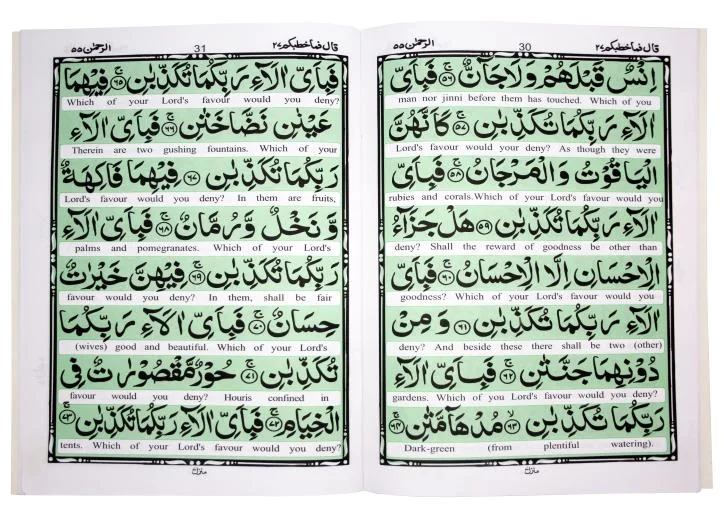 الرحمٰن ٥٥
30
قال فما خطبكم ٢٧
اِنْسٌ قَبْلَهُمْ وَلَا جَآنٌّ ۚ﴿٥٦﴾ فَبِاَیِّ
man nor jinni before them has touched. Which of you
اٰلَآءِ رَبِّکُمَا تُکَذِّبٰنِ ۚ﴿٥٧﴾ کَاَنَّهُنَّ
Lord's favour would your deny? As though they were
الْیَاقُوْتُ وَالْمَرْجَانُ ۚ﴿٥٨﴾ فَبِاَیِّ
rubies and corals.Which of your Lord's favour would you
اٰلَآءِ رَبِّکُمَا تُکَذِّبٰنِ ﴿٥٩﴾ هَلْ جَزَآءُ
deny? Shall the reward of goodness be other than
الْاِحْسَانِ اِلَّا الْاِحْسَانُ ۚ﴿٦٠﴾ فَبِاَیِّ
goodness? Which of your Lord's favour would you
اٰلَآءِ رَبِّکُمَا تُکَذِّبٰنِ ﴿٦١﴾ وَمِنْ
deny? And beside these there shall be two (other)
دُوْنِهِمَا جَنَّتٰنِ ۚ﴿٦٢﴾ فَبِاَیِّ اٰلَآءِ
gardens. Which of you Lord's favour would you deny?
رَبِّکُمَا تُکَذِّبٰنِ ۙ﴿٦٣﴾ مُدْهَآمَّتٰنِ ۚ﴿٦٤﴾
Dark-green (from plentiful watering).
منزل
الرحمٰن ٥٥
31
قال فما خطبكم ٢٧
فَبِاَیِّ اٰلَآءِ رَبِّکُمَا تُکَذِّبٰنِ ۚ﴿٦٥﴾ فِیْهِمَا
Which of your Lord's favour would you deny?
عَیْنٰنِ نَضَّاخَتٰنِ ۚ﴿٦٦﴾ فَبِاَیِّ اٰلَآءِ
Therein are two gushing fountains. Which of your
رَبِّکُمَا تُکَذِّبٰنِ ﴿٦٧﴾ فِیْهِمَا فَاکِهَةٌ
Lord's favour would you deny? In them are fruits,
وَّنَخْلٌ وَّرُمَّانٌ ۚ﴿٦٨﴾ فَبِاَیِّ اٰلَآءِ
palms and pomegranates. Which of your Lord's
رَبِّکُمَا تُکَذِّبٰنِ ۚ﴿٦٩﴾ فِیْهِنَّ خَیْرٰتٌ
favour would you deny? In them, shall be fair
حِسَانٌ ۚ﴿٧٠﴾ فَبِاَیِّ اٰلَآءِ رَبِّکُمَا
(wives) good and beautiful. Which of your Lord's
تُکَذِّبٰنِ ۚ﴿٧١﴾ حُوْرٌ مَّقْصُوْرٰتٌ فِی
favour would you deny? Houris confined in
الْخِیَامِ ۚ﴿٧٢﴾ فَبِاَیِّ اٰلَآءِ رَبِّکُمَا تُکَذِّبٰنِ ۚ﴿٧٣﴾
tents. Which of your Lord's favour would you deny?
منزل